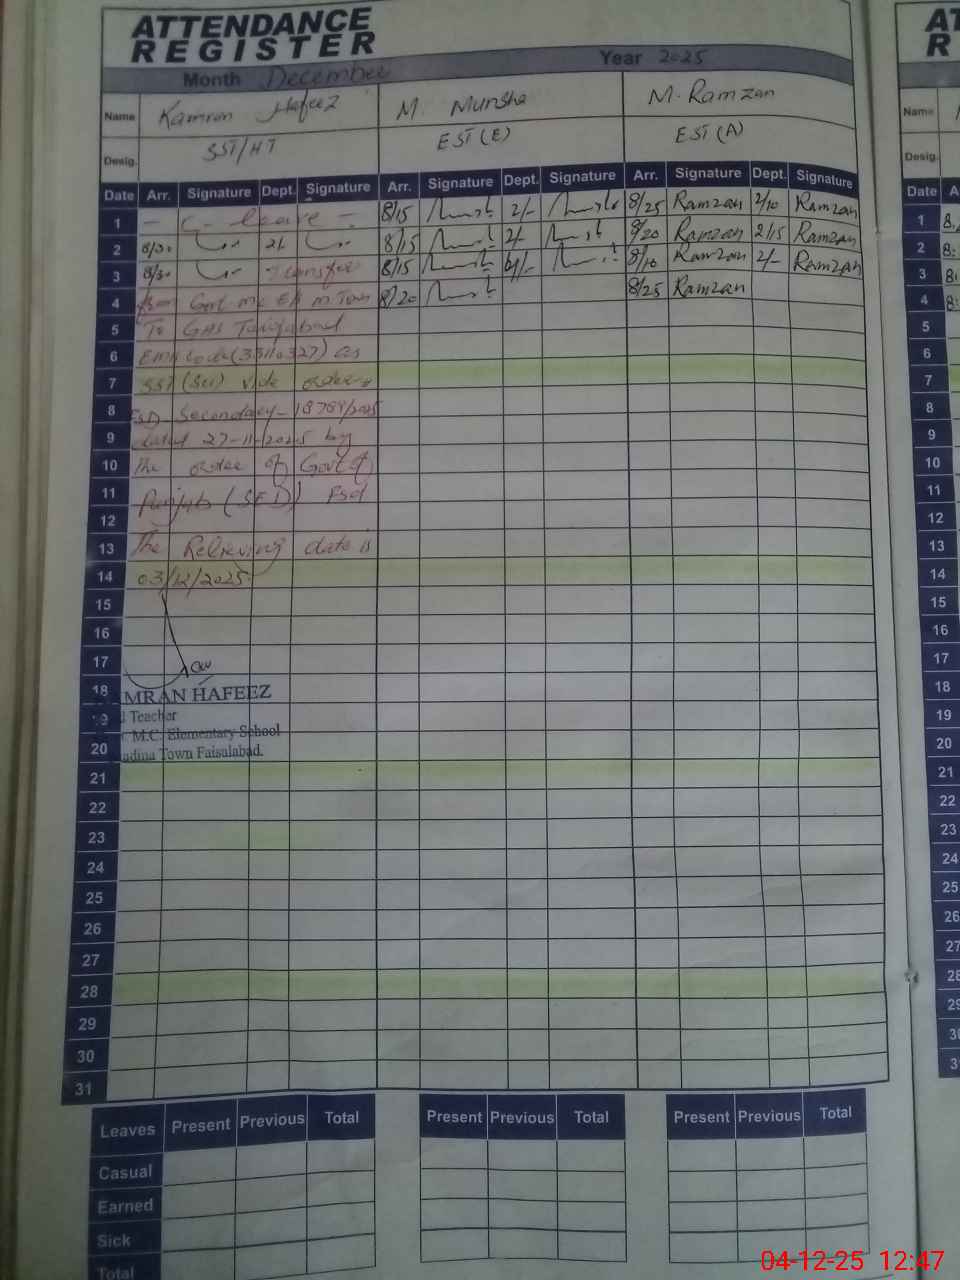 ATTENDANCE
REGISTER
Month December Year 2025
Name Kamran Hafeez M. Munsha M. Ramzan
Desig. SST/HT EST(E) EST(A)
Date Arr. Signature Dept. Signature Arr. Signature Dept. Signature Arr. Signature Dept. Signature
1 - C- leave - 8/15 2/- 8/25 Ramzan 2/10 Ramzan
2 8/30 2/- 8/15 2/- 8/20 Ramzan 2/15 Ramzan
3 8/30 Transfer 8/15 8/10 Ramzan 2/- Ramzan
4 from Govt mc M Town 8/20 8/25 Ramzan
5 To GHS
6 code(33110327) as
7 SST (Sci) vide order
8 Secondary- /2025
9 dated 27-11-2025 by
10 The order of Govt of
11 Punjab (SED) Fsd
12
13 The Relieving date is
14 03/12/2025.
15
16
17
18 AMRAN HAFEEZ
19 d Teacher
M.C. Elementary School
20 adina Town Faisalabad.
21
22
23
24
25
26
27
28
29
30
31
Leaves Present Previous Total Present Previous Total Present Previous Total
Casual
Earned
Sick
Total
AT
R
Name
Desig.
Date A
1 8:
2 8:
3 8:
4 8:
5
6
7
8
9
10
11
12
13
14
15
16
17
18
19
20
21
22
23
24
25
26
27
28
29
30
3
04-12-25 12:47